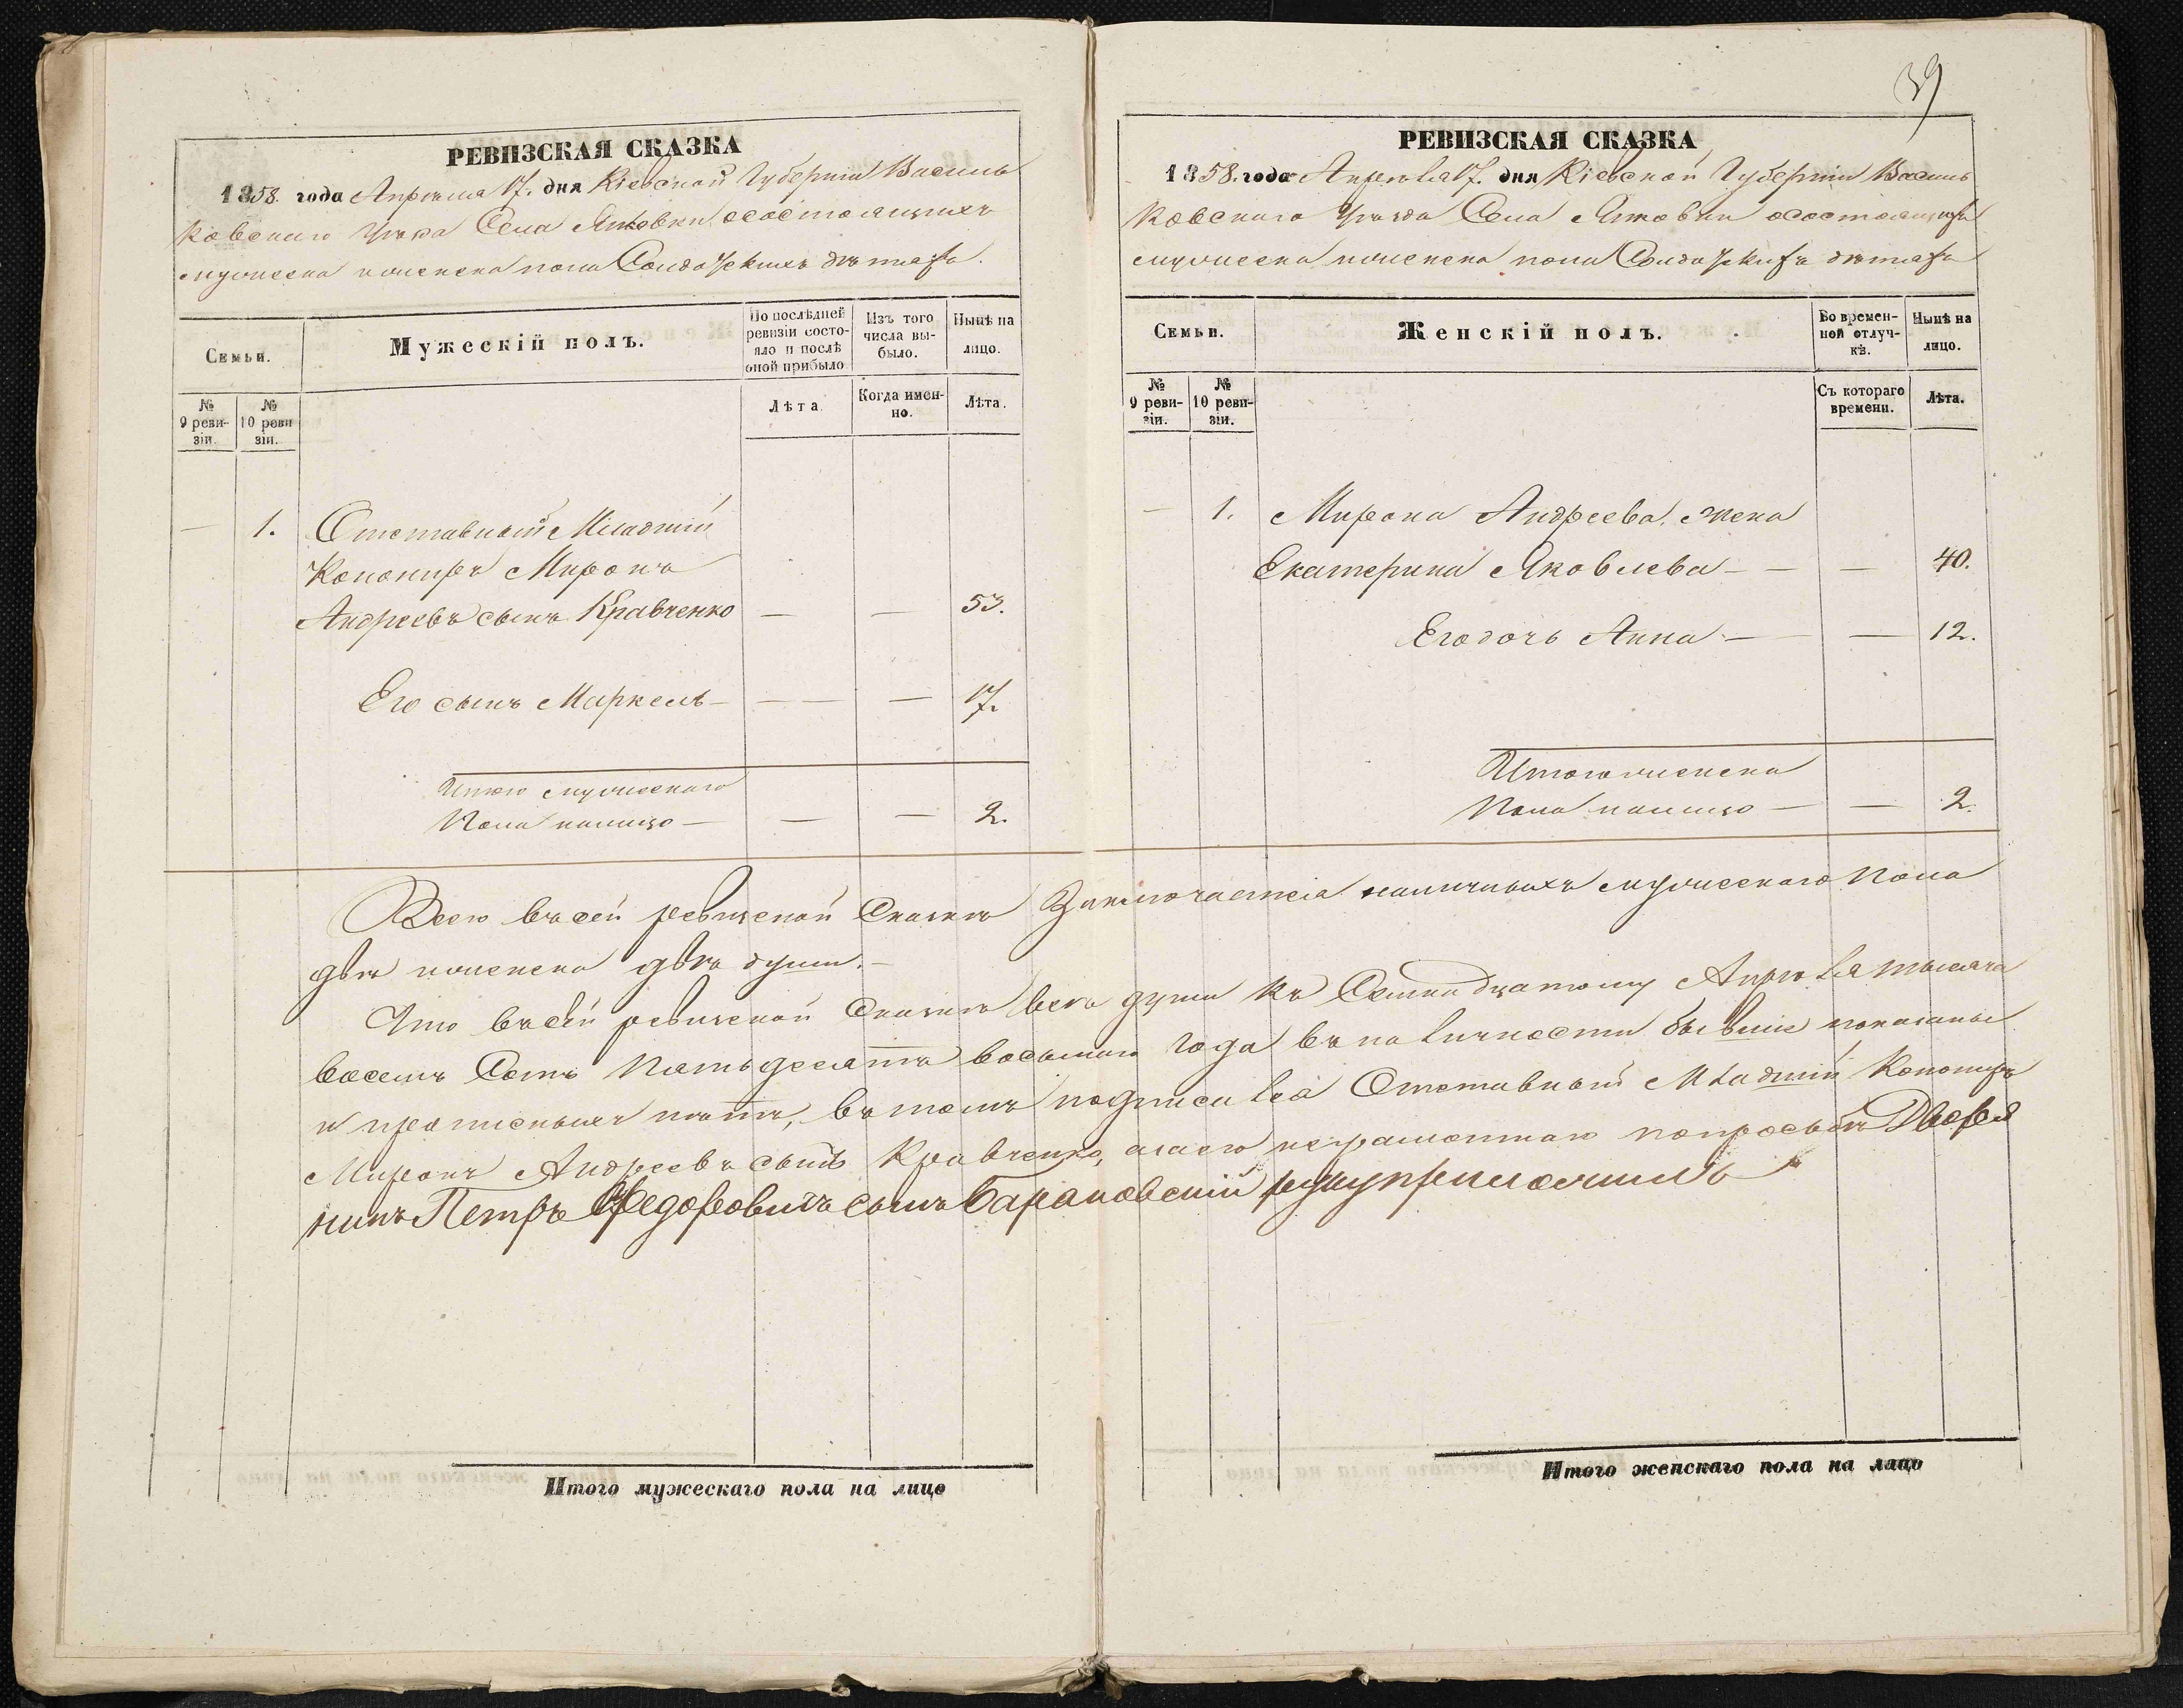 39
РЕВИЗСКАЯ СКАЗКА
1858. года Апрѣля 17. дня Кіевской Губерніи Василь
ковскаго Уѣзда Села Яцковки, осостоящихъ
мужеска иженска пола Солдатскихъ дѣтяхъ.
Семьи.
Мужескій полъ.
По послѣдней ревизіи состо-
яло и послѣ
оной прибыло
Изъ того
числа вы-
было.
Нынѣ на
лицо.
№
9 реви-
зіи.
№
10 реви
зіи.
Лѣта
Когда имен-
но.
Лѣта.
— 1. Отставной Младшій
Конониръ Миронъ
Андреевъ сынъ Кравченко — — 53.
Его сынъ Маркелъ — — — 17.
Итого мужескаго
Пола налицо — — — 2.
РЕВИЗСКАЯ СКАЗКА
1858. года Апрѣля 17. дня Кіевской Губерніи Василь
ковскаго Уѣзда Села Яцковки осостоящихъ
мужеска иженска пола Солдатскихъ дѣтяхъ
Семьи.
Женскій полъ.
Во времен-
ной отлуч-
кѣ.
Нынѣ на
лицо.
№
9 реви-
зіи.
№
10 реви-
зіи.
Съ котораго
времени.
Лѣта.
— 1. Мирона Андреева жена
Екатерина Яковлева — — — 40.
Его дочь Анна — — 12.
Итого женска
Пола налицо — — 2.
Всего въ сей ревизской Сказкѣ Заключается наличныхъ мужескаго Пола
двѣ иженска двѣ души.—
Что въ сей ревизской Сказкѣ всѣ души къ Семнадцатому Апрѣля тысяча
восемъ Сотъ Пятьдесятъ восьмаго года въ наличности бывшіе показаны
и прописныхъ нѣтъ, въ томъ подписался Отставной Младшій Конониръ
Миронъ Андреевъ сынъ Кравченко, а за его неграмотнаго по просьбѣ Дворя
нинъ Петръ Федоровичъ сынъ Барановскій руку приложилъ
Итого мужескаго пола на лицо
Итого женскаго пола на лицо